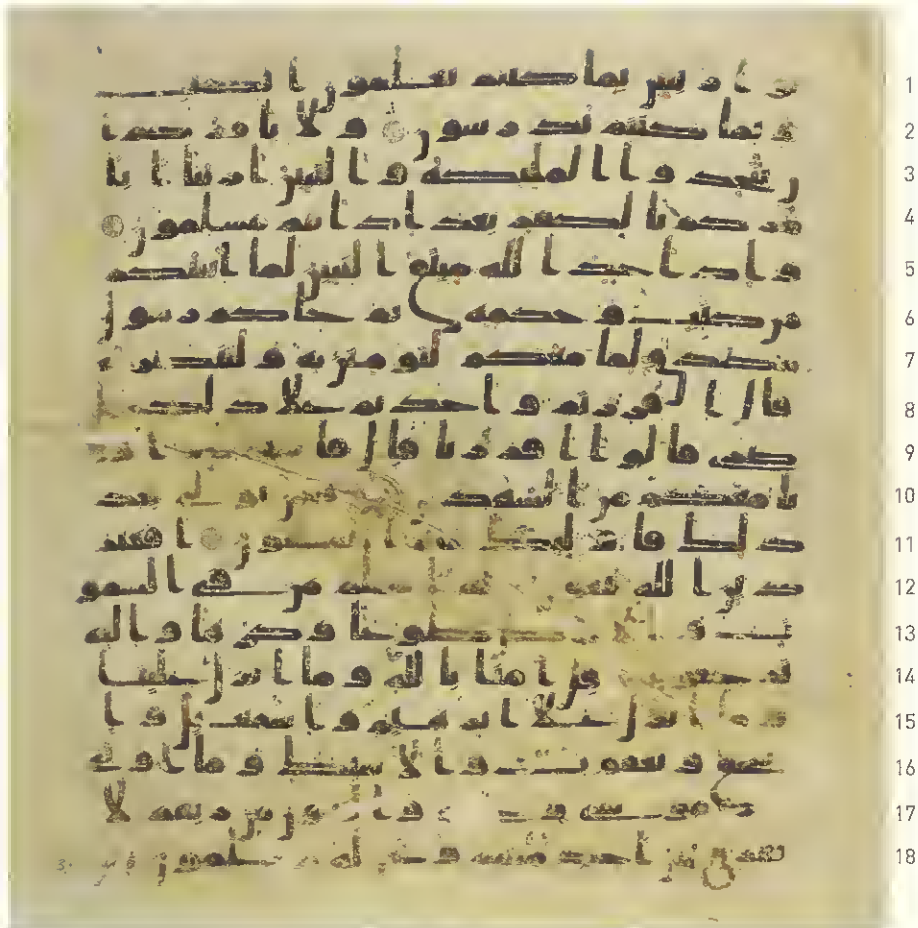 وا ربنين بما كنتم تعلمون الكتب
و بما كنتم تدرسون و لا يامركم ا
ن تتخذوا الملئكة و النبين اربابا ايا
مركم بالكفر بعد اذ انتم مسلمون
و اذ اخذ الله ميثق النبين لما اتيتكم
من كتب و حكمة ثم جاكم رسول
مصدق لما معكم لتومنن به و لتنصرنه
قال اقررتم و اخذتم على ذلكم ا
صري قالوا اقررنا قال فاشهدوا و
انا معكم من الشهدين فمن تولى بعد
ذلك فاولئك هم الفسقون افغير
دين الله يبغون و له اسلم من في السمو
ت و الارض طوعا و كرها و اليه
ترجعون قل امنا بالله و ما انزل علينا
و ما انزل على ابرهيم و اسمعيل و ا
سحق و يعقوب و الاسبط و ما اوتي
موسى و عيسى و النبيون من ربهم لا
نفرق بين احد منهم و نحن له مسلمون
1
2
3
4
5
6
7
8
9
10
11
12
13
14
15
16
17
18